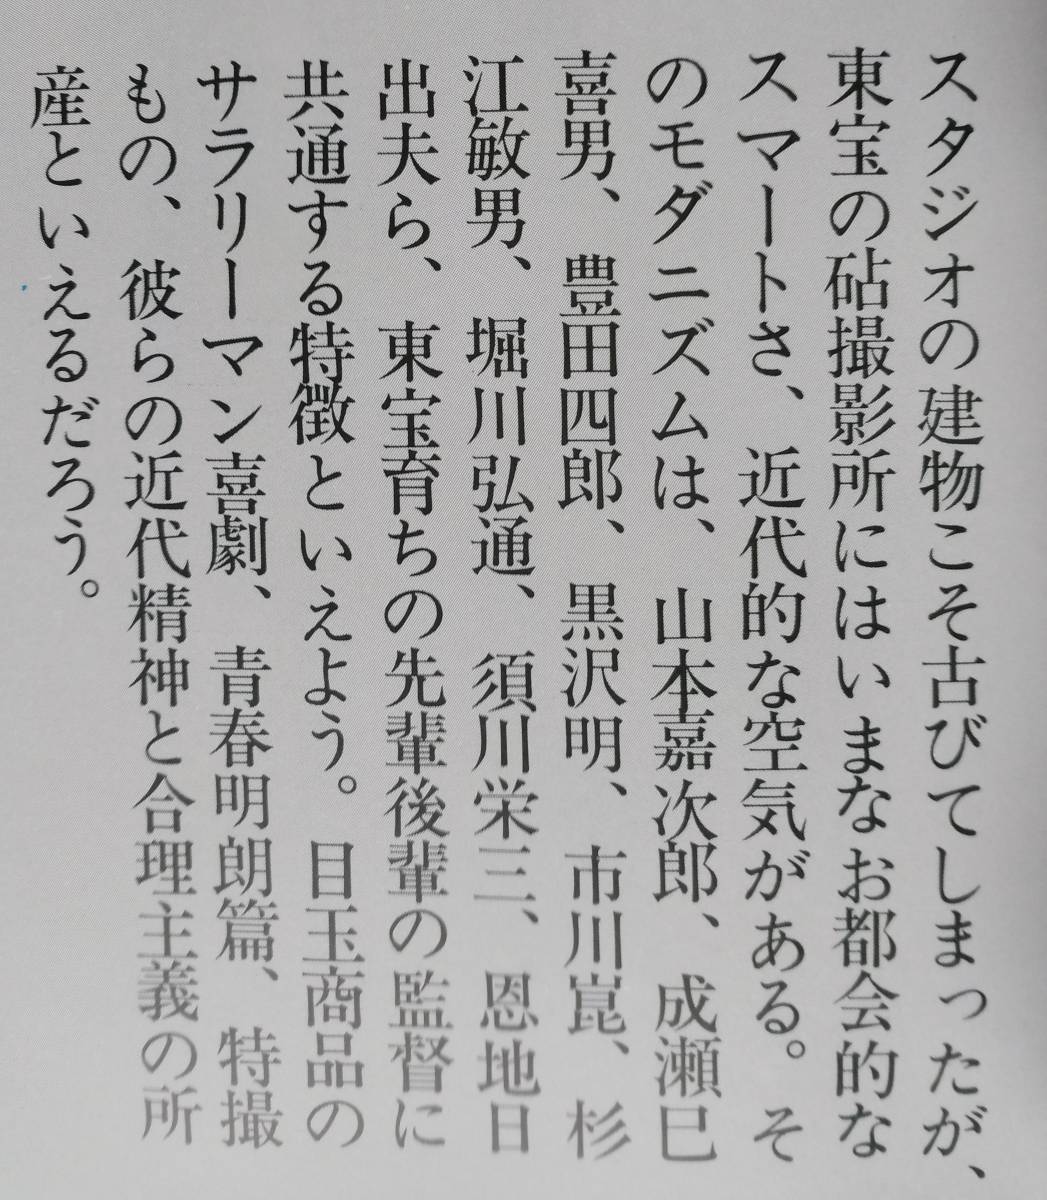 スタジオの建物こそ古びてしまったが、
東宝の砧撮影所にはいまなお都会的な
スマートさ、近代的な空気がある。そ
のモダニズムは、山本嘉次郎、成瀬巳
喜男、豊田四郎、黒沢明、市川崑、杉
江敏男、堀川弘通、須川栄三、恩地日
出夫ら、東宝育ちの先輩後輩の監督に
共通する特徴といえよう。目玉商品の
サラリーマン喜劇、青春明朗篇、特撮
もの、彼らの近代精神と合理主義の所
産といえるだろう。